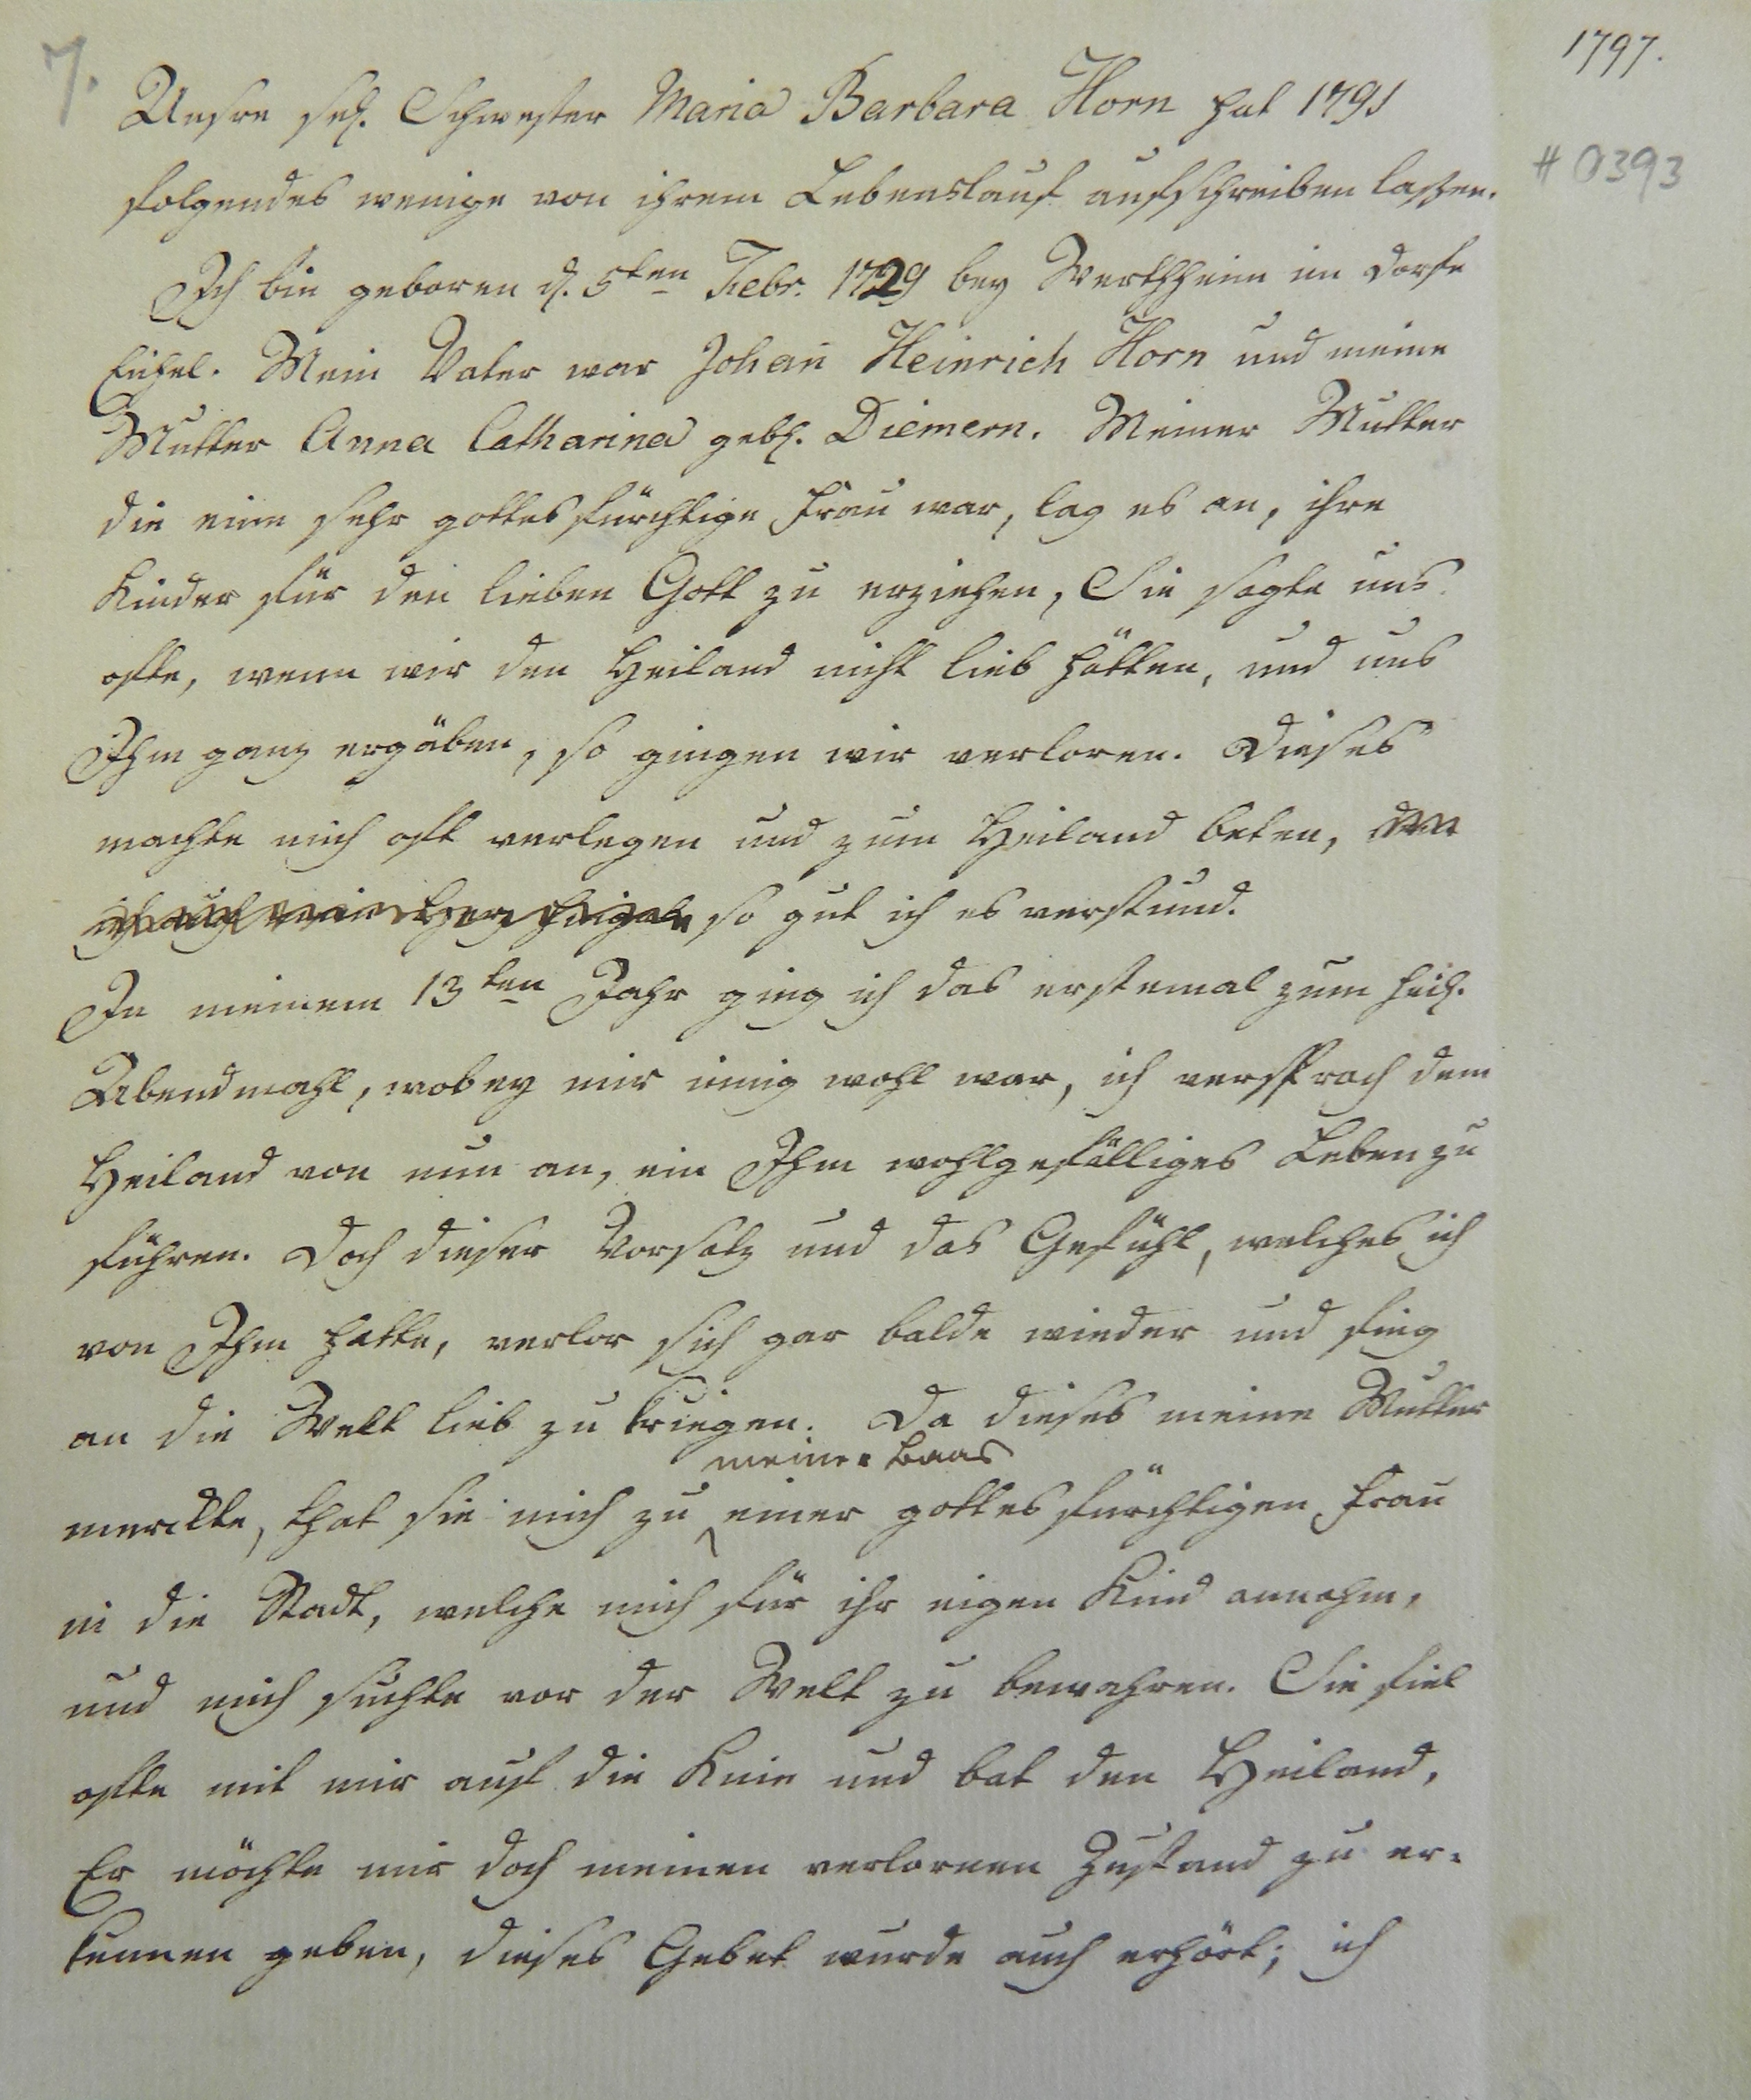 7.
1797.
# 0393
Unsre sel. Schwester Maria Barbara Horn hat 1791
folgendes wenige von ihrem Lebenslauf aufschreiben laßen.
Ich bin geboren d. 5ten Febr. 1729 bey Werthheim im Dorfe
Eichel. Mein Vater war Johañ Heinrich Horn und meine
Mutter Anna Catharina geb. Diemern. Meiner Mutter
die eine sehr gottesfürchtige Frau war, lag es an, ihre
Kinder für den lieben Gott zu erziehen, Sie sagte uns
ofte, wenn wir den Heiland nicht lieb hätten, und uns
Ihm ganz ergäben, so gingen wir verloren. Dieses
machte mich oft verlegen und zum Heiland beten, dem
ich auch mein Herz hingab so gut ich es verstund.
In meinem 13ten Jahr ging ich das erstemal zum heil.
Abendmahl, wobey mir innig wohl war, ich versprach dem
Heiland von nun an, ein Ihm wohlgefälliges Leben zu
führen. Doch dieser Vorsatz und das Gefühl, welches ich
von Ihm hatte, verlor sich gar balde wieder und fing
an die Welt lieb zu kriegen. Da dieses meine Mutter
meiner Baas
merckte, that sie mich zu einer gottesfürchtigen Frau
in die Stadt, welche mich für ihr eigen Kind annahm,
und mich suchte vor der Welt zu bewahren. Sie fiel
ofte mit mir auf die Knie und bat den Heiland,
Er möchte mir doch meinen verlornen Zustand zu er-
kennen geben, dieses Gebet wurde auch erhört; ich